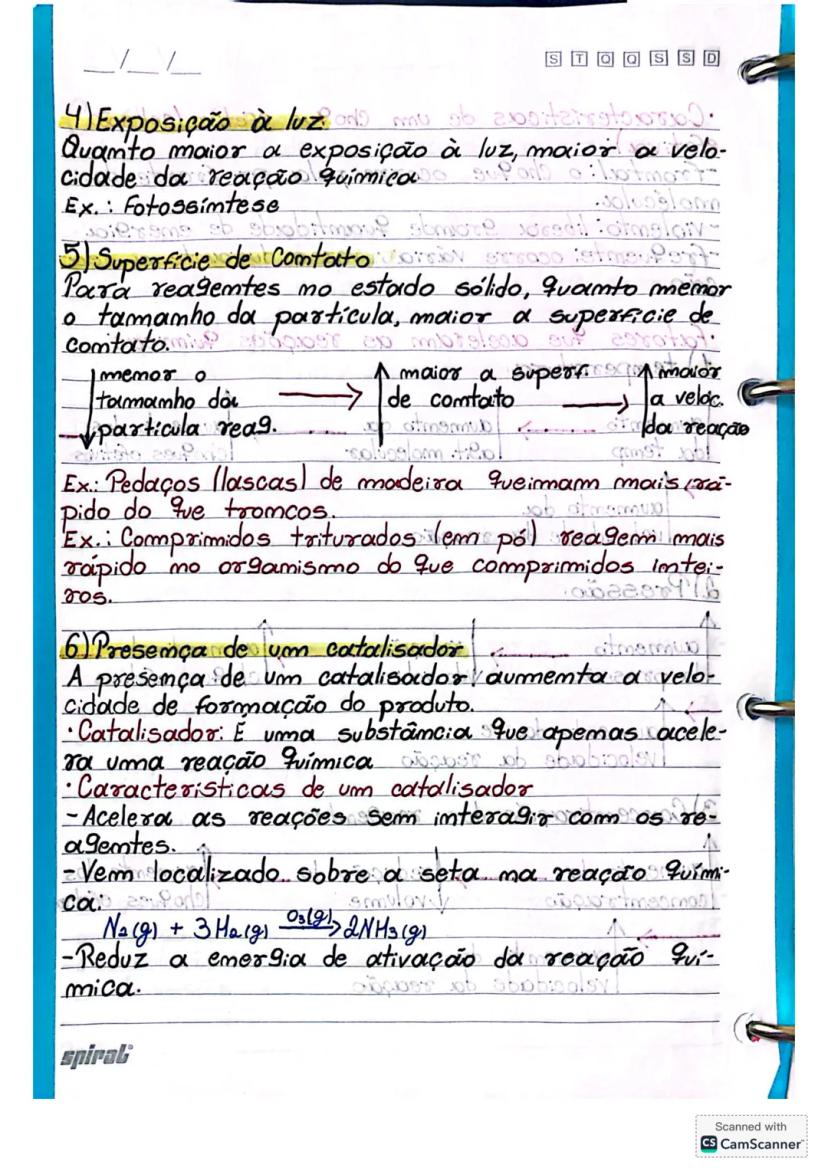 __/__/__
S T Q Q S S D
4) Exposição à luz
Quanto maior a exposição à luz, maior a velo-
cidade da reação química
Ex.: Fotossíntese
5) Superfície de Contato
Para reagentes no estado sólido, quanto menor
o tamanho da partícula, maior a superfície de
contato.
↓ menor o tamanho da partícula reag. → ↑ maior a superf. de contato → ↑ maior a veloc. da reação
Ex.: Pedaços (lascas) de madeira queimam mais rá-
pido do que troncos.
Ex.: Comprimidos triturados (em pó) reagem mais
rápido no organismo do que comprimidos intei-
ros.
6) Presença de um catalisador
A presença de um catalisador aumenta a velo-
cidade de formação do produto.
·Catalisador: É uma substância que apenas acele-
ra uma reação química
·Características de um catalisador
-Acelera as reações sem interagir com os re-
agentes.
-Vem localizado sobre a seta na reação quími-
ca:
N2(g) + 3H2(g) O3(g)→ 2NH3(g)
-Reduz a energia de ativação da reação quí-
mica.
spiral
Scanned with
CS CamScanner